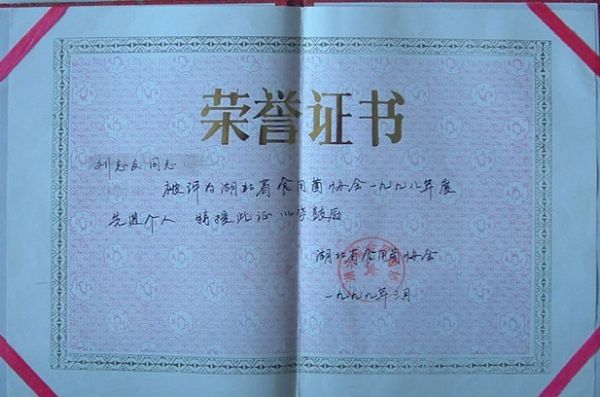 荣誉证书
刘志友 同志
被评为湖北省食用菌协会一九九八年度
先进个人 特授此证 以资鼓励
湖北省食用菌协会
一九九九年三月